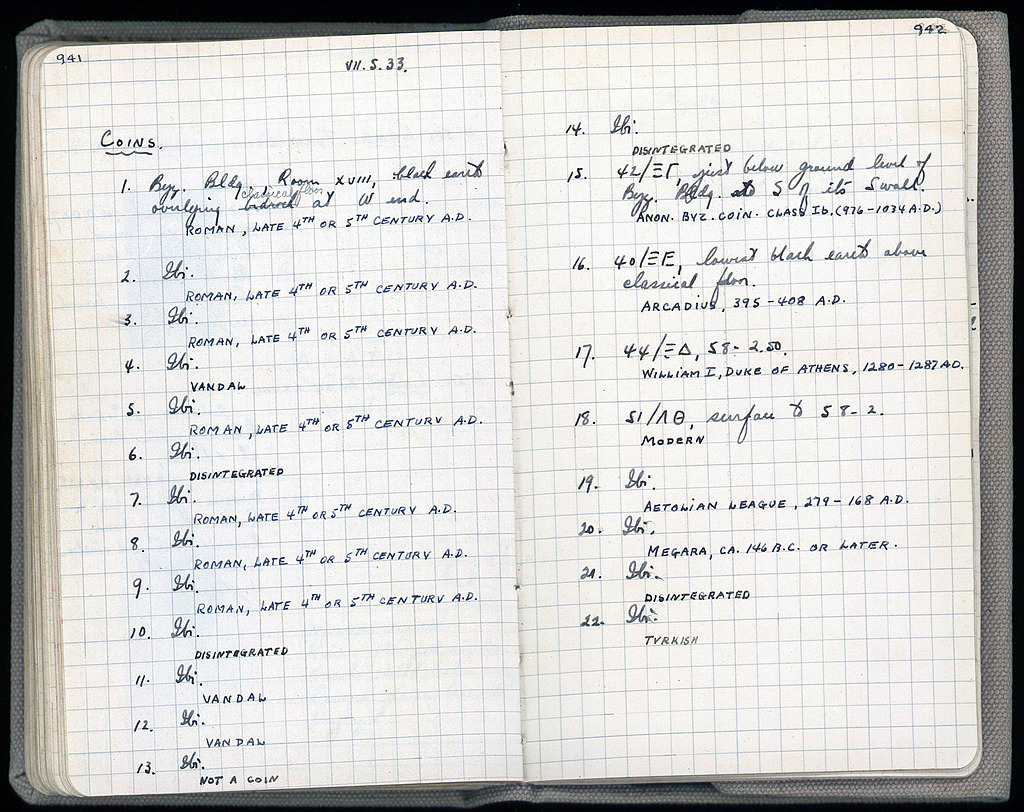 941
VII. 5. 33.
COINS.
1. Byz. Bldg., Room XVIII, black earth
classical floor
overlying bedrock at W end.
ROMAN, LATE 4TH OR 5TH CENTURY A.D.
2. Ibi.
ROMAN, LATE 4TH OR 5TH CENTURY A.D.
3. Ibi.
ROMAN, LATE 4TH OR 5TH CENTURY A.D.
4. Ibi.
VANDAL
5. Ibi.
ROMAN, LATE 4TH OR 5TH CENTURY A.D.
6. Ibi.
DISINTEGRATED
7. Ibi.
ROMAN, LATE 4TH OR 5TH CENTURY A.D.
8. Ibi.
ROMAN, LATE 4TH OR 5TH CENTURY A.D.
9. Ibi.
ROMAN, LATE 4TH OR 5TH CENTURY A.D.
10. Ibi.
DISINTEGRATED
11. Ibi.
VANDAL
12. Ibi.
VANDAL
13. Ibi.
NOT A COIN
942
14. Ibi.
DISINTEGRATED
15. 42/ΞΓ, just below ground level of
Byz. Bldg. to S of its S wall.
ANON. BYZ. COIN. CLASS Ib. (976-1034 A.D.)
16. 40/ΞΕ, lowest black earth above
classical floor.
ARCADIUS, 395-408 A.D.
17. 44/ΞΔ, 58-2.50.
WILLIAM I, DUKE OF ATHENS, 1280-1287 A.D.
18. 51/ΛΘ, surface to 58-2.
MODERN
19. Ibi.
AETOLIAN LEAGUE, 279-168 A.D.
20. Ibi.
MEGARA, CA. 146 B.C. OR LATER.
21. Ibi.
DISINTEGRATED
22. Ibi.
TURKISH